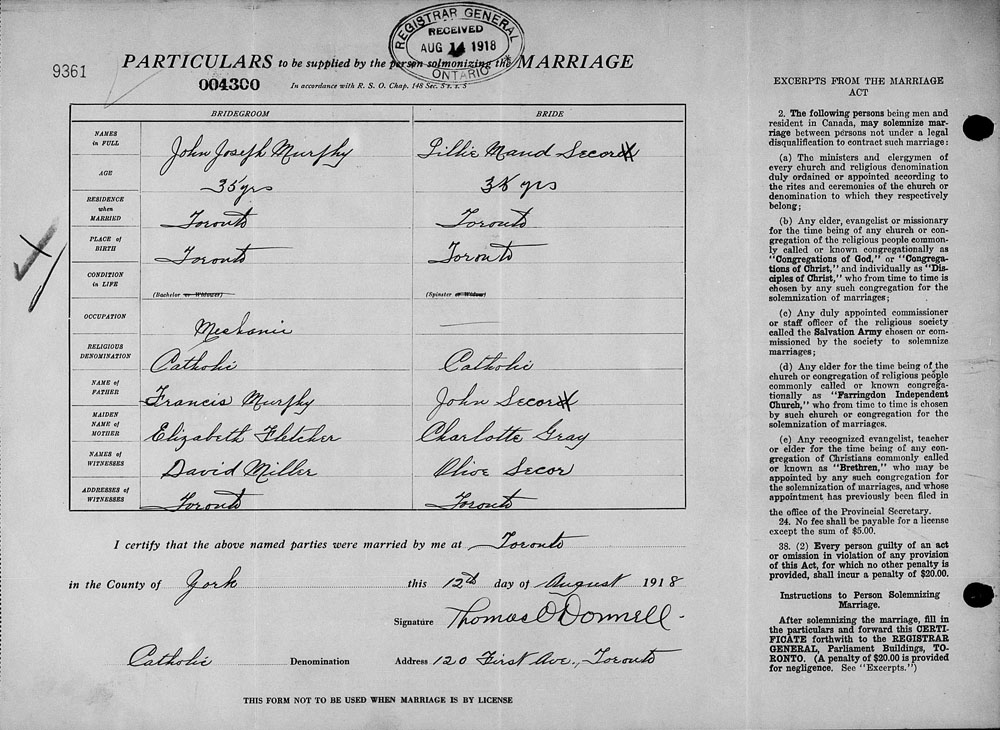 REGISTRAR GENERAL
RECEIVED
AUG 14 1918
ONTARIO
9361
PARTICULARS to be supplied by the person solmonizing the MARRIAGE
004300
In accordance with R. S. O. Chap. 148 Sec.
BRIDEGROOM BRIDE
NAMES in FULL John Joseph Murphy Lillie Maud Secor
AGE 35 yrs 35 yrs
RESIDENCE when MARRIED Toronto Toronto
PLACE of BIRTH Toronto Toronto
CONDITION in LIFE (Bachelor or Widower) (Spinster or Widow)
OCCUPATION Mechanic
RELIGIOUS DENOMINATION Catholic Catholic
NAME of FATHER Francis Murphy John Secor
MAIDEN NAME of MOTHER Elizabeth Fletcher Charlotte Gray
NAMES of WITNESSES David Miller Olive Secor
ADDRESSES of WITNESSES Toronto Toronto
I certify that the above named parties were married by me at Toronto
in the County of York this 12th day of August 1918
Signature Thomas O'Donnell
Catholic Denomination Address 120 First Ave., Toronto
THIS FORM NOT TO BE USED WHEN MARRIAGE IS BY LICENSE
EXCERPTS FROM THE MARRIAGE
ACT
2. The following persons being men and
resident in Canada, may solemnize mar-
riage between persons not under a legal
disqualification to contract such marriage:
(a) The ministers and clergymen of
every church and religious denomination
duly ordained or appointed according to
the rites and ceremonies of the church or
denomination to which they respectively
belong;
(b) Any elder, evangelist or missionary
for the time being of any church or con-
gregation of the religious people common-
ly called or known congregationally as
"Congregations of God," or "Congrega-
tions of Christ," and individually as "Dis-
ciples of Christ," who from time to time is
chosen by any such congregation for the
solemnization of marriages;
(c) Any duly appointed commissioner
or staff officer of the religious society
called the Salvation Army chosen or com-
missioned by the society to solemnize
marriages;
(d) Any elder for the time being of the
church or congregation of religious people
commonly called or known congrega-
tionally as "Farringdon Independent
Church," who from time to time is chosen
by such church or congregation for the
solemnization of marriages.
(e) Any recognized evangelist, teacher
or elder for the time being of any con-
gregation of Christians commonly called
or known as "Brethren," who may be
appointed by any such congregation for
the solemnization of marriages, and whose
appointment has previously been filed in
the office of the Provincial Secretary.
24. No fee shall be payable for a license
except the sum of $5.00.
38. (2) Every person guilty of an act
or omission in violation of any provision
of this Act, for which no other penalty is
provided, shall incur a penalty of $20.00.
Instructions to Person Solemnizing
Marriage.
After solemnizing the marriage, fill in
the particulars and forward this CERTI-
FICATE forthwith to the REGISTRAR
GENERAL, Parliament Buildings, TO-
RONTO. (A penalty of $20.00 is provided
for negligence. See "Excerpts.")